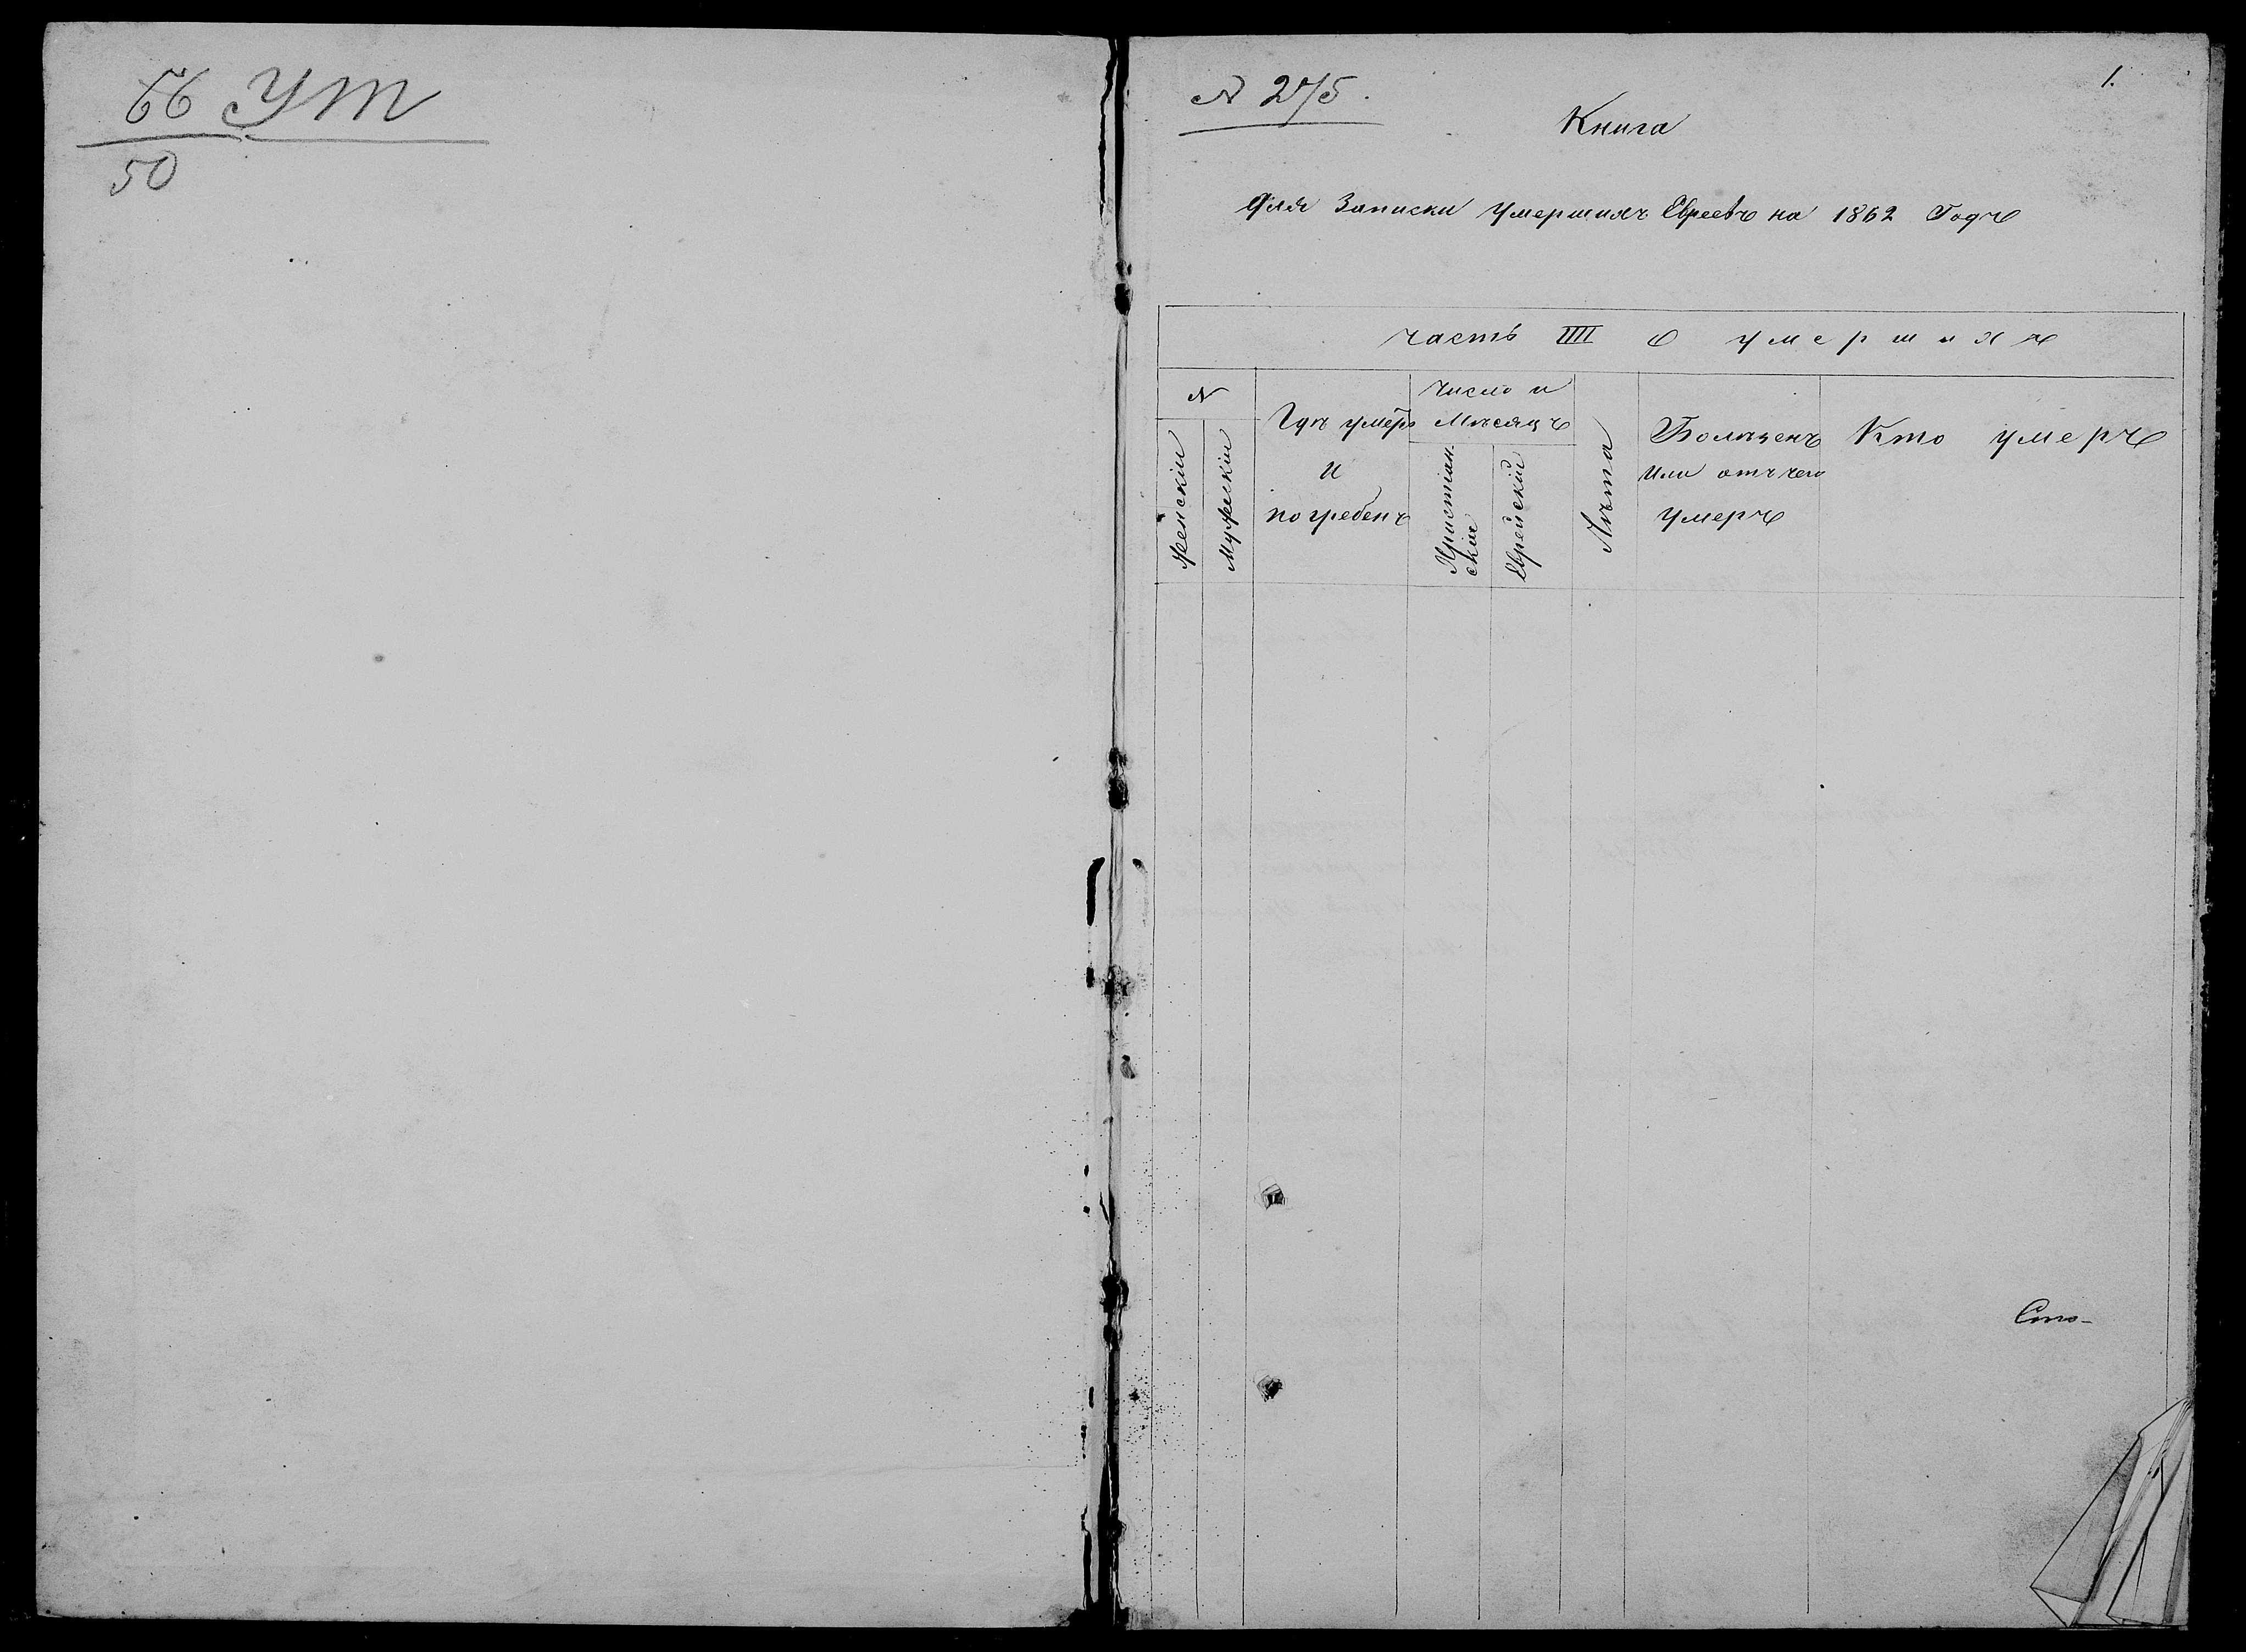 66 УТ
50
№ 275.
1.
Книга
Для Записки Умершихъ Евреевъ на 1862 Годъ
Часть IIII о умершихъ
№
Женскiй
Мужескiй
Гдѣ умеръ
и
погребенъ
Число и
Мѣсяцъ
Христiан
скiй
Еврейскiй
Лѣта
Болѣзень
Или отъ чего
Умеръ
Кто умеръ
Сто-